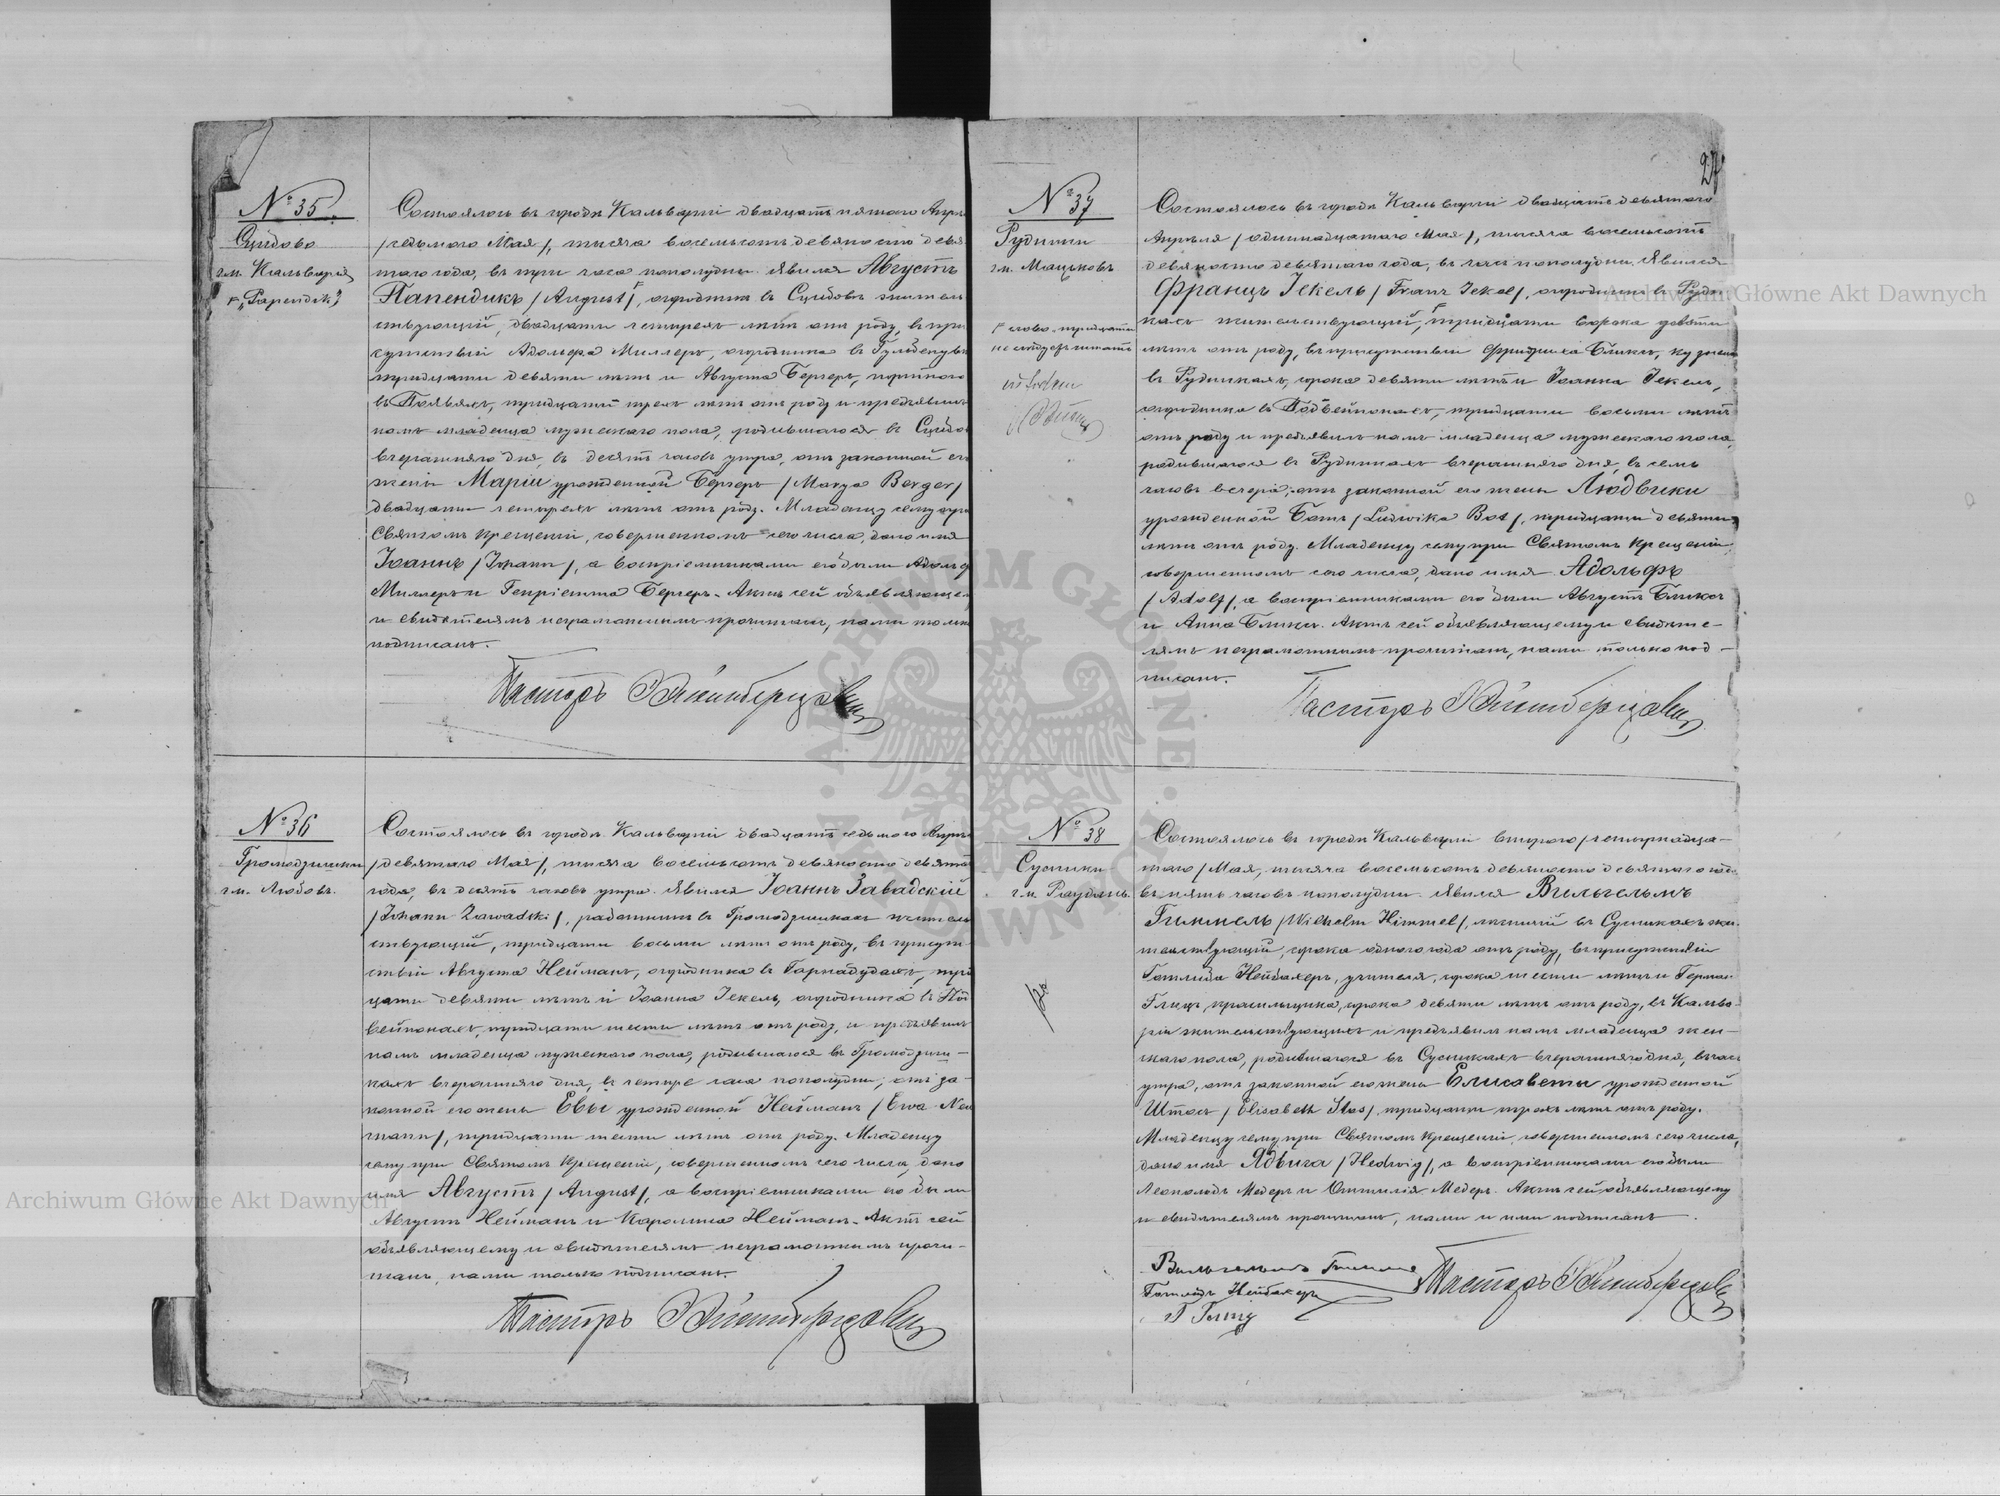 27
№ 35
Сундово
гм. Кальварія
"Papendik"
Состоялось въ городѣ Кальваріи двадцать пятаго Апрѣ
/седьмого Мая/, тысяча восемьсотъ девяносто девя
таго года, въ три часа пополудни. Явился Августъ
Папендикъ /August/, огородникъ въ жители
ствующій, двадцати четырехъ лѣтъ отъ роду, въ при
сутствіи Адольфа Миллеръ, огородника въ
тридцати девяти лѣтъ и Августа Бергеръ,
въ тридцати трехъ лѣтъ отъ роду и предъявилъ
намъ младенца мужескаго пола, родившагося въ
вчерашняго дня, въ десять часовъ утра, отъ законной его
жены Маріи урожденной Бергеръ /Marya Berger/
двадцати четырехъ лѣтъ отъ роду. Младенцу сему при
Святомъ Крещеніи, совершенномъ сего числа, дано имя
Іоаннъ /Johann/, а воспріемниками его были Адольфъ
Миллеръ и Генріетта Бергеръ. Актъ сей объявляющему
и свидѣтелямъ неграмотнымъ прочитанъ, нами только
подписанъ.
Пасторъ
№ 36
Громадзишки
гм. Любовъ.
Состоялось въ городѣ Кальваріи двадцать седьмого Апрѣ
/девятаго Мая/, тысяча восемьсотъ девяносто девятаго
года, въ десять часовъ утра. Явился Іоаннъ Завадскій
/Johann Zawadski/, работникъ въ Громадзишкахъ житель
ствующій, тридцати восьми лѣтъ отъ роду, въ присут
ствіи Августа Нейманъ, огородника въ три
дцати девяти лѣтъ и Іоанна Іекель, огородника въ Под
вейпонахъ, тридцати шести лѣтъ отъ роду, и предъявилъ
намъ младенца мужескаго пола, родившагося въ Громадзиш-
кахъ вчерашняго дня, въ четыре часа пополудни, отъ за-
конной его жены Евы урожденной Нейманъ /Ewa Neu
mann/, тридцати шести лѣтъ отъ роду. Младенцу
сему при Святомъ Крещеніи, совершенномъ сего числа, дано
имя Августъ /August/, а воспріемниками его были
Августъ Нейманъ и Каролина Нейманъ. Актъ сей
объявляющему и свидѣтелямъ неграмотнымъ прочи-
танъ, нами только подписанъ.
Пасторъ
№ 37
Рудники
гм. Мацьковъ
слово "тридцати"
не слѣдуетъ читать
Состоялось въ городѣ Кальваріи двадцать девятаго
Апрѣля /одиннадцатаго Мая/, тысяча восемьсотъ
девяносто девятаго года, въ часъ пополудни. Явился
Францъ Іекель /Franz Jekel/, огородникъ въ Рудни
кахъ жительствующій, тридцати сорока девяти
лѣтъ отъ роду, въ присутствіи Фридриха Бликъ, кузнеца
въ Рудникахъ, сорока девяти лѣтъ и Іоанна Іекель,
огородника въ Подвейпонахъ, тридцати восьми лѣтъ
отъ роду и предъявилъ намъ младенца мужескаго пола,
родившагося въ Рудникахъ вчерашняго дня, въ семь
часовъ вечера, отъ законной его жены Людвики
урожденной Ботъ /Ludwika Bot/, тридцати девяти
лѣтъ отъ роду. Младенцу сему при Святомъ Крещеніи,
совершенномъ сего числа, дано имя Адольфъ
/Adolf/, а воспріемниками его были Августъ Бликъ
и Анна Бликъ. Актъ сей объявляющему и свидѣте-
лямъ неграмотнымъ прочитанъ, нами только под-
писанъ.
Пасторъ
№ 38
Сусники
гм. Раудань
Состоялось въ городѣ Кальваріи второго /четырнадца-
таго/ Мая, тысяча восемьсотъ девяносто девятаго года
въ пять часовъ пополудни. Явился Вильгельмъ
Гиммель /Wilhelm Himmel/, лѣсничій въ Сусникахъ жи-
тельствующій, сорока одного года отъ роду, въ присутствіи
Готлиба Нейбахеръ, учителя, сорока шести лѣтъ и Герман
красильщика, сорока девяти лѣтъ отъ роду, въ Кальва-
ріи жительствующихъ и предъявилъ намъ младенца жен-
скаго пола, родившагося въ Сусникахъ вчерашняго дня, въ часъ
утра, отъ законной его жены Елисаветы урожденной
Штосъ /Elisabeth Stos/, тридцати трехъ лѣтъ отъ роду.
Младенцу сему при Святомъ Крещеніи, совершенномъ сего числа,
дано имя Ядвига /Hedwig/, а воспріемниками его были
Леопольдъ Медеръ и Оттилія Медеръ. Актъ сей объявляющему
и свидѣтелямъ прочитанъ, нами и ими подписанъ.
Вильгельмъ Гиммель
Готлибъ Нейбахеръ
Пасторъ
Archiwum Główne Akt Dawnych
Archiwum Główne Akt Dawnych
ARCHIWUM GŁÓWNE AKT DAWNYCH